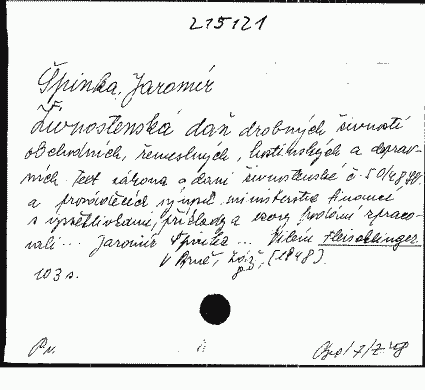 215121
Špinka, Jaromír
Živnostenská daň drobných živností
obchodních, řemeslných, hostinských a doprav-
ních. Text zákona o dani živnostenské č. 50/48
a prováděcích výnosů ministerstva financí
s vysvětlivkami, příklady a vzory podání zpraco-
vali... Jaromír Špinka... Vilém Fleischlinger.
V Brně, (1948).
103 s.